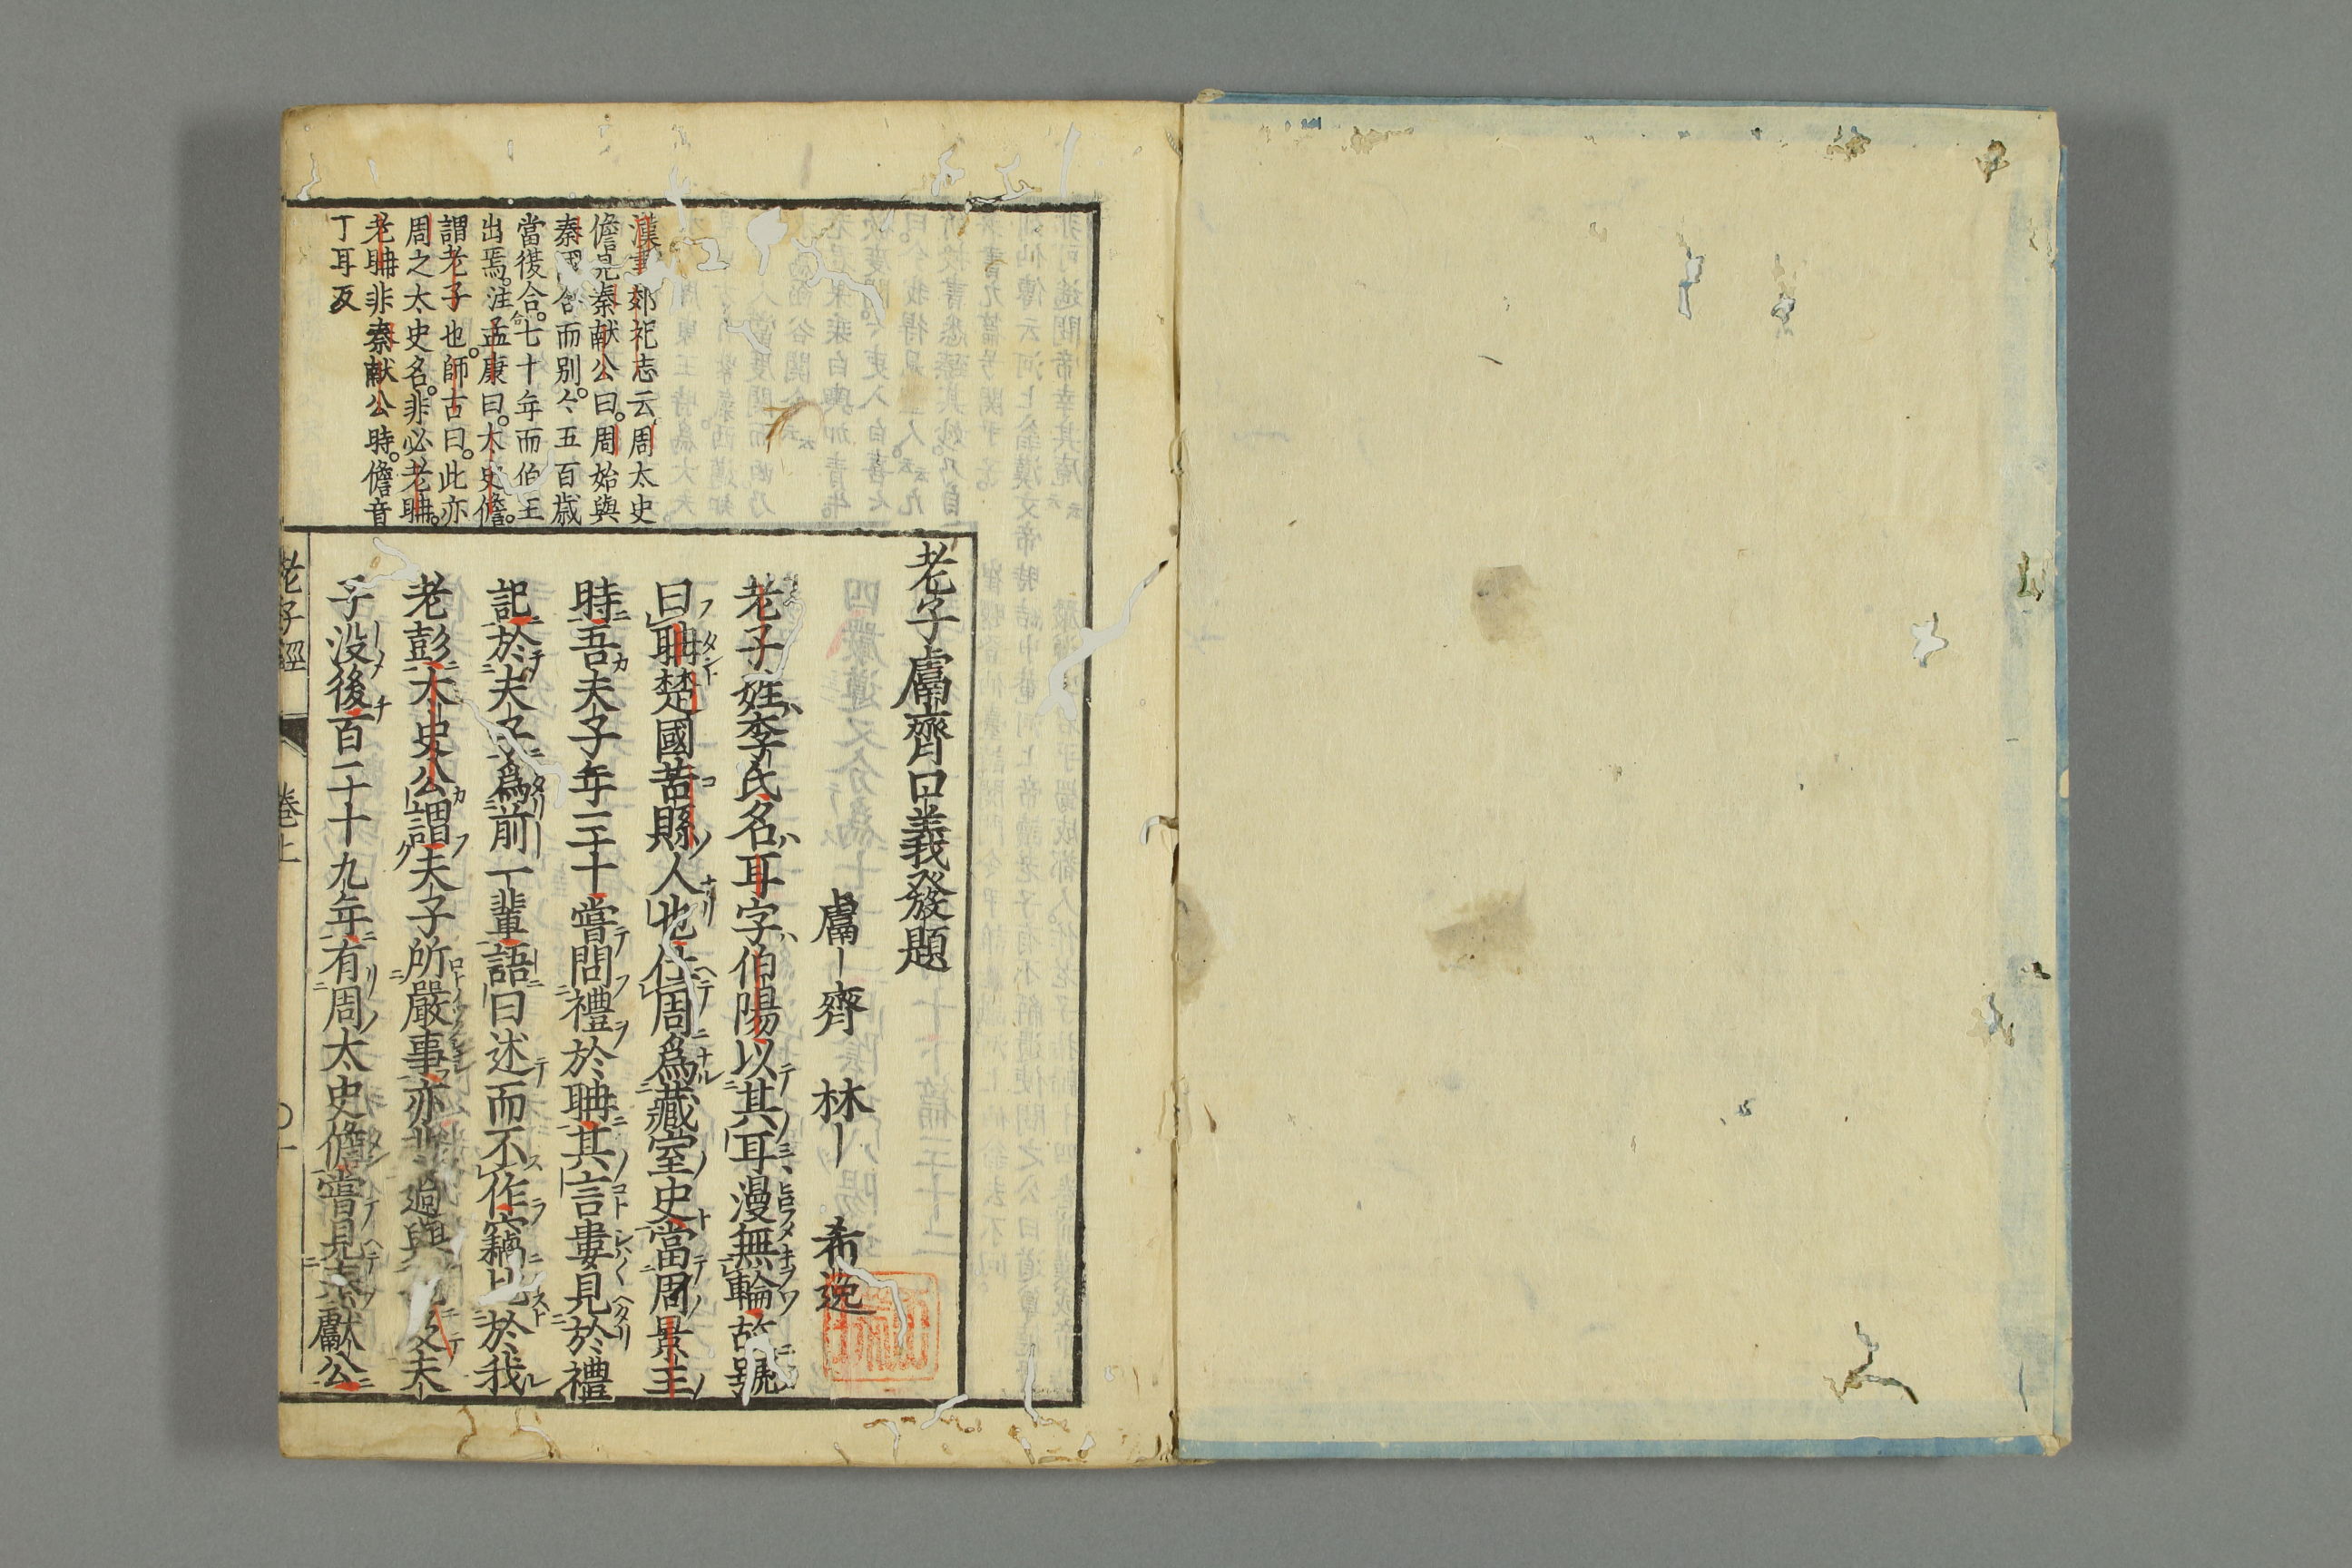 漢書郊祀志云周太史
儋見秦献公曰。周始與
秦國合而別。今五百歳
當復合。七十年而伯王
出焉。注孟康曰。太史儋。
謂老子也。師古曰。此亦
周之太史名。非必老聃。
老聃非秦献公時。儋音
丁耳反
老子鬳齊口義發題
鬳齊林希逸
老子姓李氏名耳字伯陽以其耳漫無輪故號
曰聃楚國苦縣人也仕周爲藏室史當周景王
時吾夫子年三十嘗問禮於聃其言婁見於禮
記於夫子爲前一輩語曰述而不作竊比於我
老彭太史公謂夫子所嚴事亦非過與夫
子没後百二十九年有周太史儋嘗見秦獻公
老子經 巻上 〇一